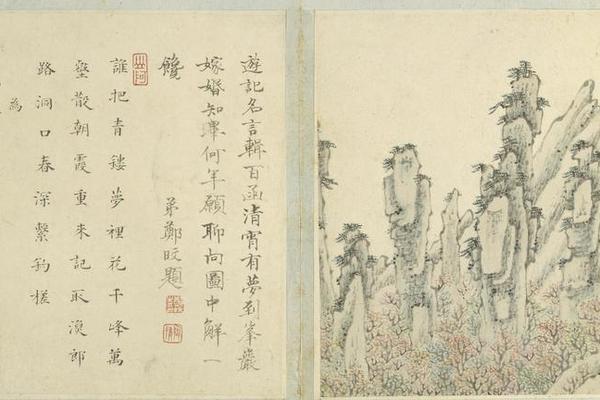 遊記名言輯百函清宵有夢到峯巖
嫁婚知畢何年願聊向圖中解一
饞
弟鄭旼題
誰把青鏤夢裡花千峰萬
壑散朝霞重來記取漁郎
路洞口春深繫釣槎
為